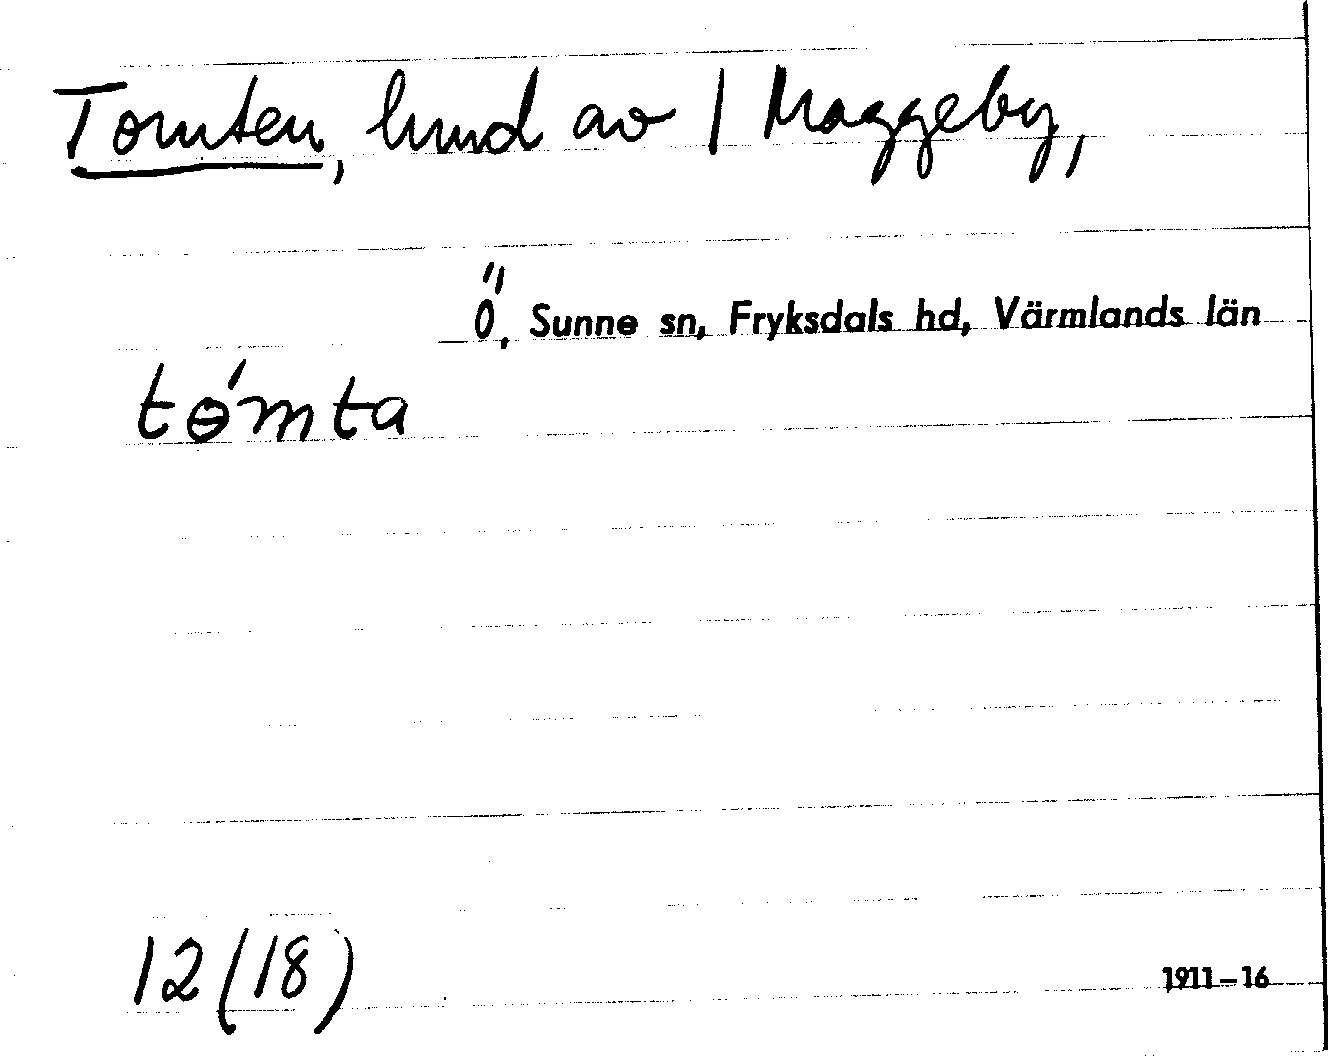 Tomten, hmd av 1 Maggeby,
Ö, Sunne sn, Fryksdals hd, Värmlands län
tɵ́mta
12 (18)
1911–16